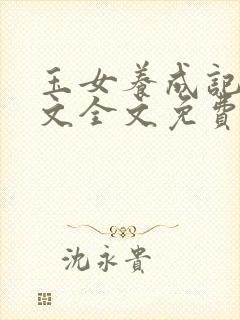 玉女养成記
文全文免費
沈永貴